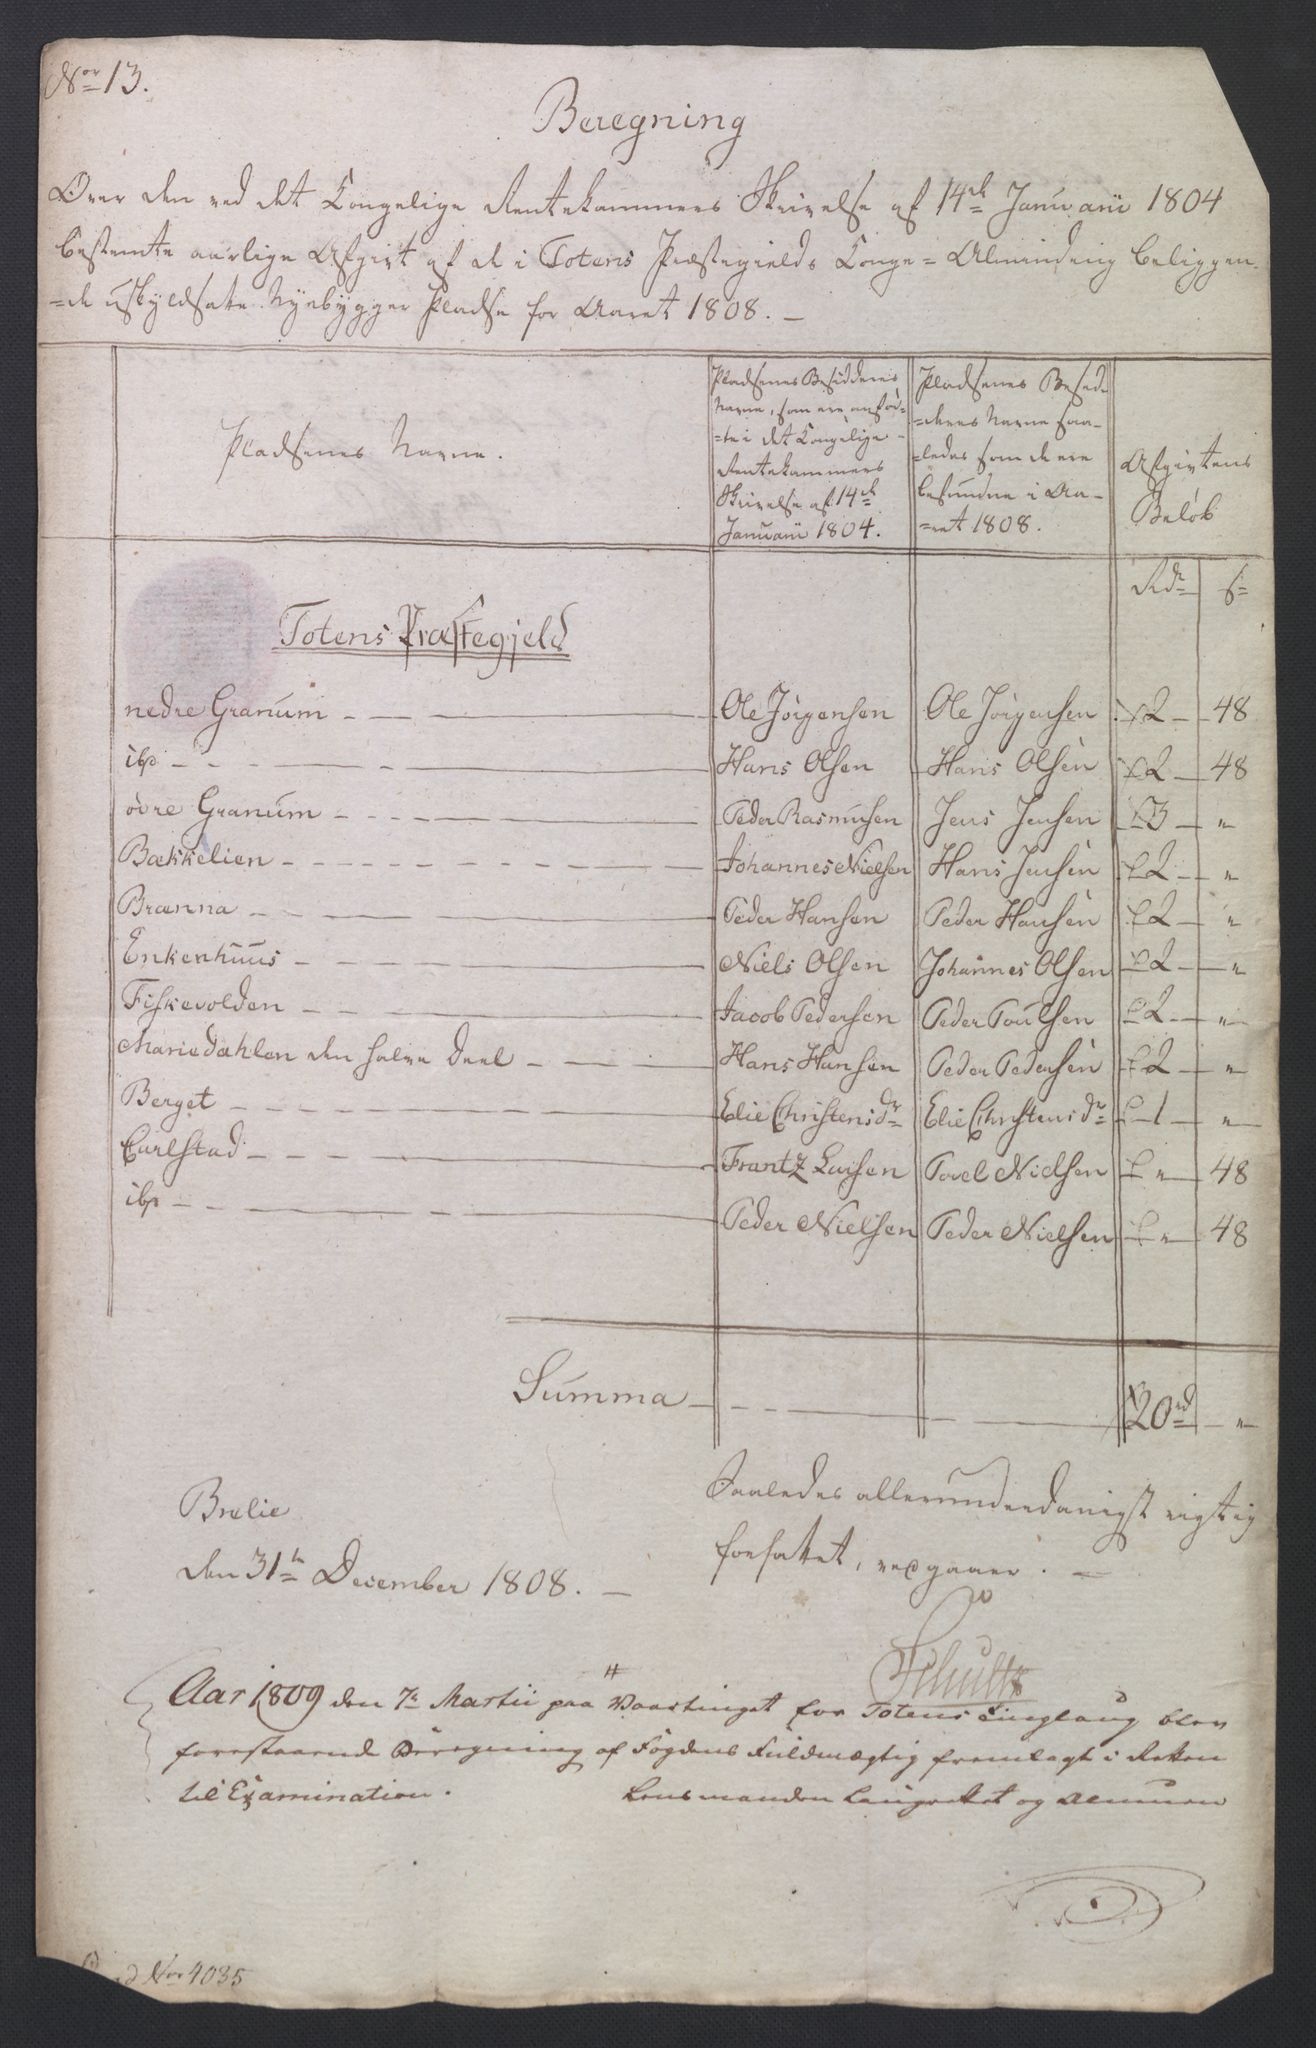 Nor 13.
Beregning
Over den ved det Kongelige Rentekammers Skrivelse af 14de Januarii 1804
bestemte aarlige Afgivt af de i Totens Præstegields Konge= Alminding beliggen-
=de uskyldsatte Nyebygger Pladse for Aaret 1808. -
Pladsenes Navne.
Pladsenes Besidderes
Navne, som ere anför-
=te i det Kongelige
Rentekammers
Skrivelse af 14de
Januarii 1804.
Pladsenes Besid-
=deres Navne saa-
=ledes som de ere
befundne i Aa-
=ret 1808.
Afgivtens
Belöb
Rdr s
Totens Præstegjeld
nedre Granum - - - Ole Jörgensen Ole Jörgensen 2 - 48
ibd - - - Hans Olsen Hans Olsen 2 - 48
övre Granum - - - Peder Rasmusen Jens Jensen 3 - "
Bækkelien - - - Johannes Nielsen Hans Jensen 2 - "
Brænna - - - Peder Hansen Peder Hansen 2 - "
Enkenhuus - - - Niels Olsen Johannes Olsen 2 - "
Fiskevolden - - - Jacob Pedersen Peder Poulsen 2 - "
Mariedahlen den halve Deel - - - Hans Hansen Peder Pedersen 2 - "
Berget - - - Elie Christensdr Elie Christensdr 1 - "
Carlstad - - - Frantz Larsen Povel Nielsen " 48
ibd - - - Peder Nielsen Peder Nielsen " 48
Summa - - - 20rd - "
Brelie
den 31te December 1808. -
Saaledes allerunderdanigst rigtig
forfattet, udgaaer. -
Schultz
Aar 1809 den 7de Martii paa Vaartinget for Totens Tinglaug blev
forestaaende Beregning af Fogdens Fuldmægtig fremlagt i Retten
til Examination. Lensmanden Laugrettet og Almuen
Nor 4035